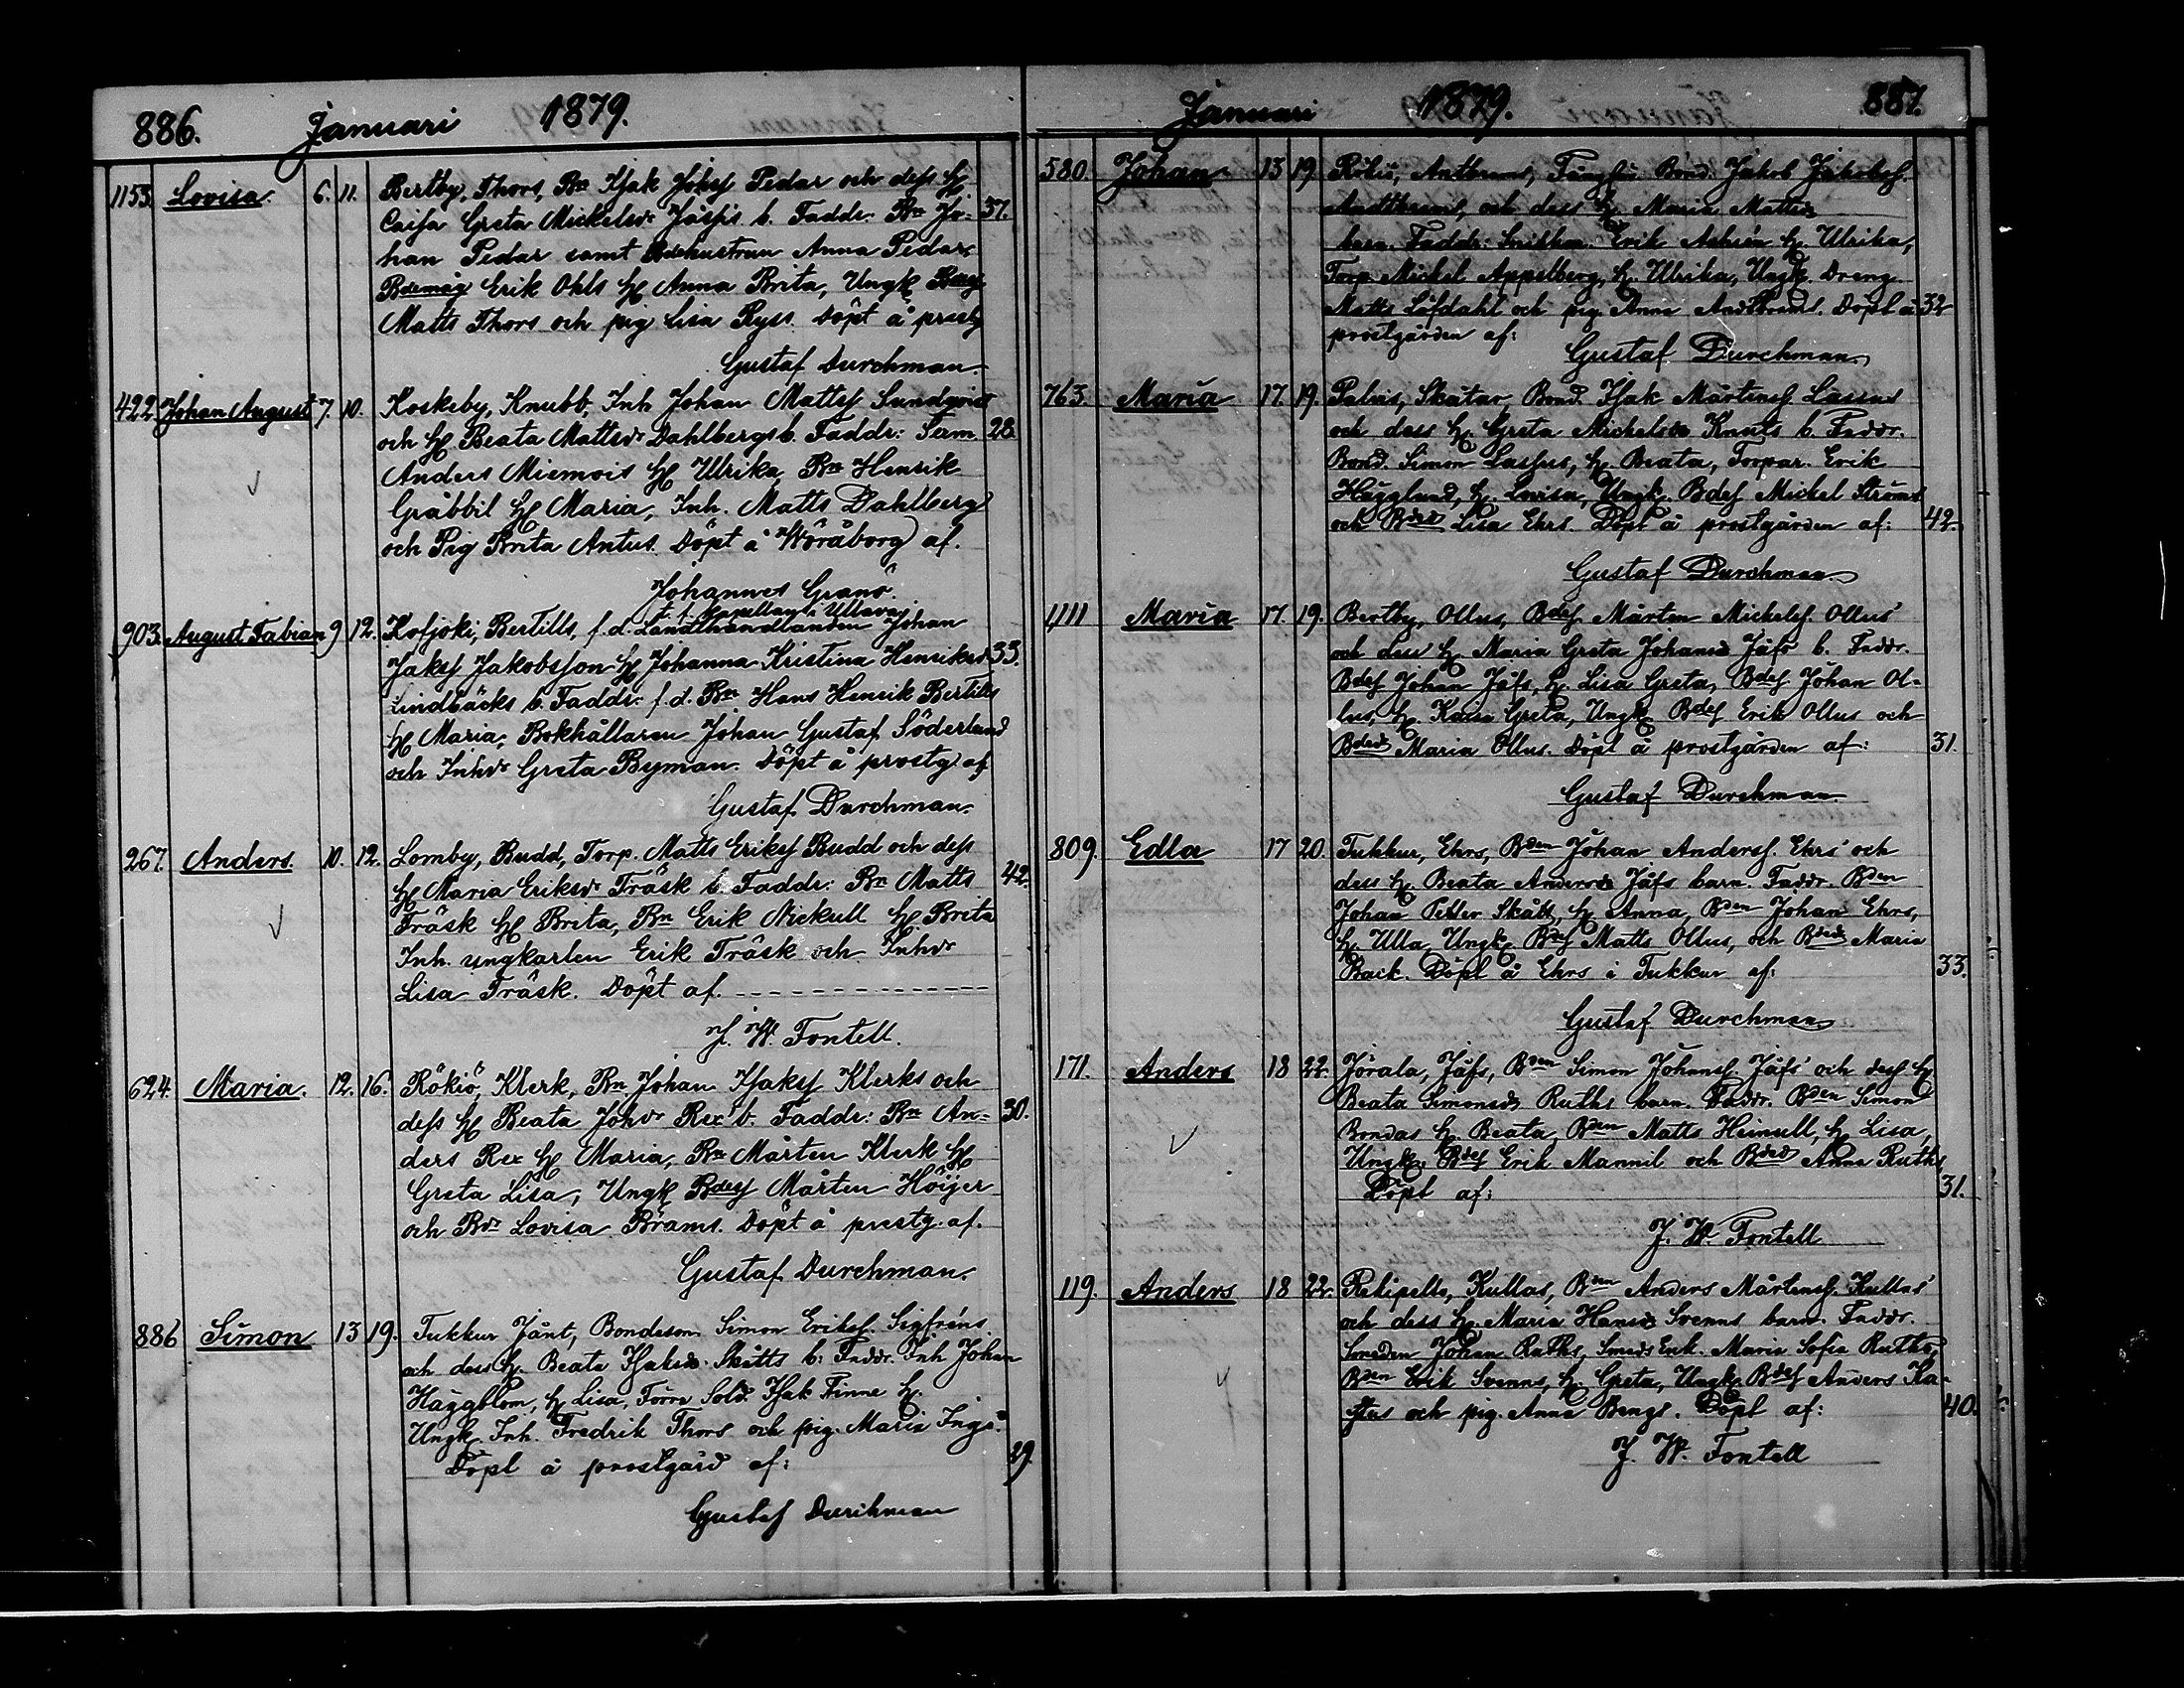 886. Januari 1879.
1153. Lovisa. 6. 11. Bertby, Thors, Bn Isak Johsf Pedar och dess H
Caisa Greta Mickelsdr Jåfs's b. Faddr. Bn Jo- 37.
han Pedar samt Bdehustrun Anna Pedar,
Bdemåg Erik Ohls H Anna Brita, Ungk Bdesf
Matts Thors och pig Lisa Ryss. Döpt å prestg
Gustaf Durchman.
422 Johan August 7. 10. Koskeby, Knubb, Inh Johan Mattsf Sundqvist
och H Beata Mattsdr Dahlbergs b. Faddr: Sexm. 28.
Anders Miemois H Ulrika, Bn Henrik
Gråbbil H Maria, Inh. Matts Dahlberg
och Pig Brita Antus. Döpt å Wöråborg af.
Johannes Granö.
t. f. Kapellan i Ullava.
903. August Fabian 9 12. Kofjoki, Bertills, f.d. Landthandlanden Johan
Jaksf Jakobsson H Johanna Kristina Henriksd 33.
Lindbäcks b. Faddr: f.d. Bn Hans Henrik Bertills
H Maria, Bokhållaren Johan Gustaf Söderlund
och Inhdr Greta Byman. Döpt å prostg af
Gustaf Durchman.
267. Anders. 10. 12. Lomby, Budd, Torp. Matts Eriksf Budd och dess
H Maria Eriksdr Träsk b. Faddr: Bn Matts 42.
Träsk H Brita, Bn Erik Nickull H Brita
Inh. ungkarlen Erik Träsk och Inhdr
Lisa Träsk. Döpt af.
J. W. Fontell.
624. Maria. 12. 16. Rökiö, Klerk, Bn Johan Isaksf Klerks och
dess H Beata Johdr Rex b. Faddr: Bn An- 30.
ders Rex H Maria, Bn Mårten Klerk H
Greta Lisa, Ungk Bdesf Mårten Höijer
och Bdr Lovisa Brams. Döpt å prestg. af.
Gustaf Durchman.
886 Simon 13 19. Tukkur Jånt, Bondeson Simon Eriksf. Sigfréns
och dess H. Beata Isaksdr Skåtts b: Faddr. Inh Johan
Häggblom, H. Lisa, Förre Sold. Isak Finne H.
Ungk. Inh. Fredrik Thors och pig. Maria Ings.
Döpt å prostgård af: 29.
Gustaf Durchman
Januari 1879. 887.
580. Johan 13 19. Rökiö, Bond. Jakob Jakobsf.
och dess H. Maria Mattsd
barn. Faddr: Erik H. Ulrika,
Torp Mickel Appelberg, H. Ulrika, Ungk. Dreng
Matts Löfdahl och pig. Anna Andtbrams. Döpt å 32
prostgården af:
Gustaf Durchman
763. Maria 17. 19. Palvis, Skåtar, Bond. Isak Mårtensf Lassus
och dess H. Greta Mickelsdr Knuts b. Faddr.
Bond. Simon Lassus, H. Beata, Torpar. Erik
Hägglund, H. Lovisa, Ungk. Bdesf Mickel Ströms
och Bded Lisa Ehrs. Döpt å prostgården af: 42.
Gustaf Durchman
1111 Maria 17. 19. Bertby, Ollus, Bdesf Mårten Mickelsf. Ollus
och dess H. Maria Greta Johansd Jåfs b. Faddr.
Bdesf Johan Jåfs, H. Lisa Greta, Bdesf Johan Ol-
lus, H. Kaisa Greta, Ungk Bdesf Erik Ollus och
Bded Maria Ollus. Döpt å prostgården af: 31.
Gustaf Durchman
809. Edla 17 20. Tukkur, Ehrs, Bden Johan Andersf. Ehrs och
dess H. Beata Andersd Jåfs barn. Faddr. Bden
Johan Petter Skått, H. Anna, Bden Johan Ehrs,
H. Ulla, Ungk. Bdesf Matts Ollus, och Bded Maria
Back. Döpt å Ehrs i Tukkur af: 33.
Gustaf Durchman
171. Anders 18 22. Jörala, Jåfs, Bden Simon Johansf. Jåfs och dess H.
Beata Simonsd Ruths barn. Faddr. Bden Simon
Bondas H. Beata, Bden Matts Heinull, H. Lisa,
Ungk. Bdesf Erik Mannil och Bded Anna Ruths
Döpt af: 31.
J. W. Fontell
119. Anders 18 22. Rekipelto, Kullas, Bden Anders Mårtensf. Kullas
och dess H. Maria Hansd Svenns barn. Faddr.
Smeden Johan Ruths, Smeds Enk. Maria Sofia Ruths,
Bden Erik Svenns, H. Greta, Ungk. Bdesf Anders Ka-
stus och pig. Anna Bengs. Döpt af: 40.
J. W. Fontell